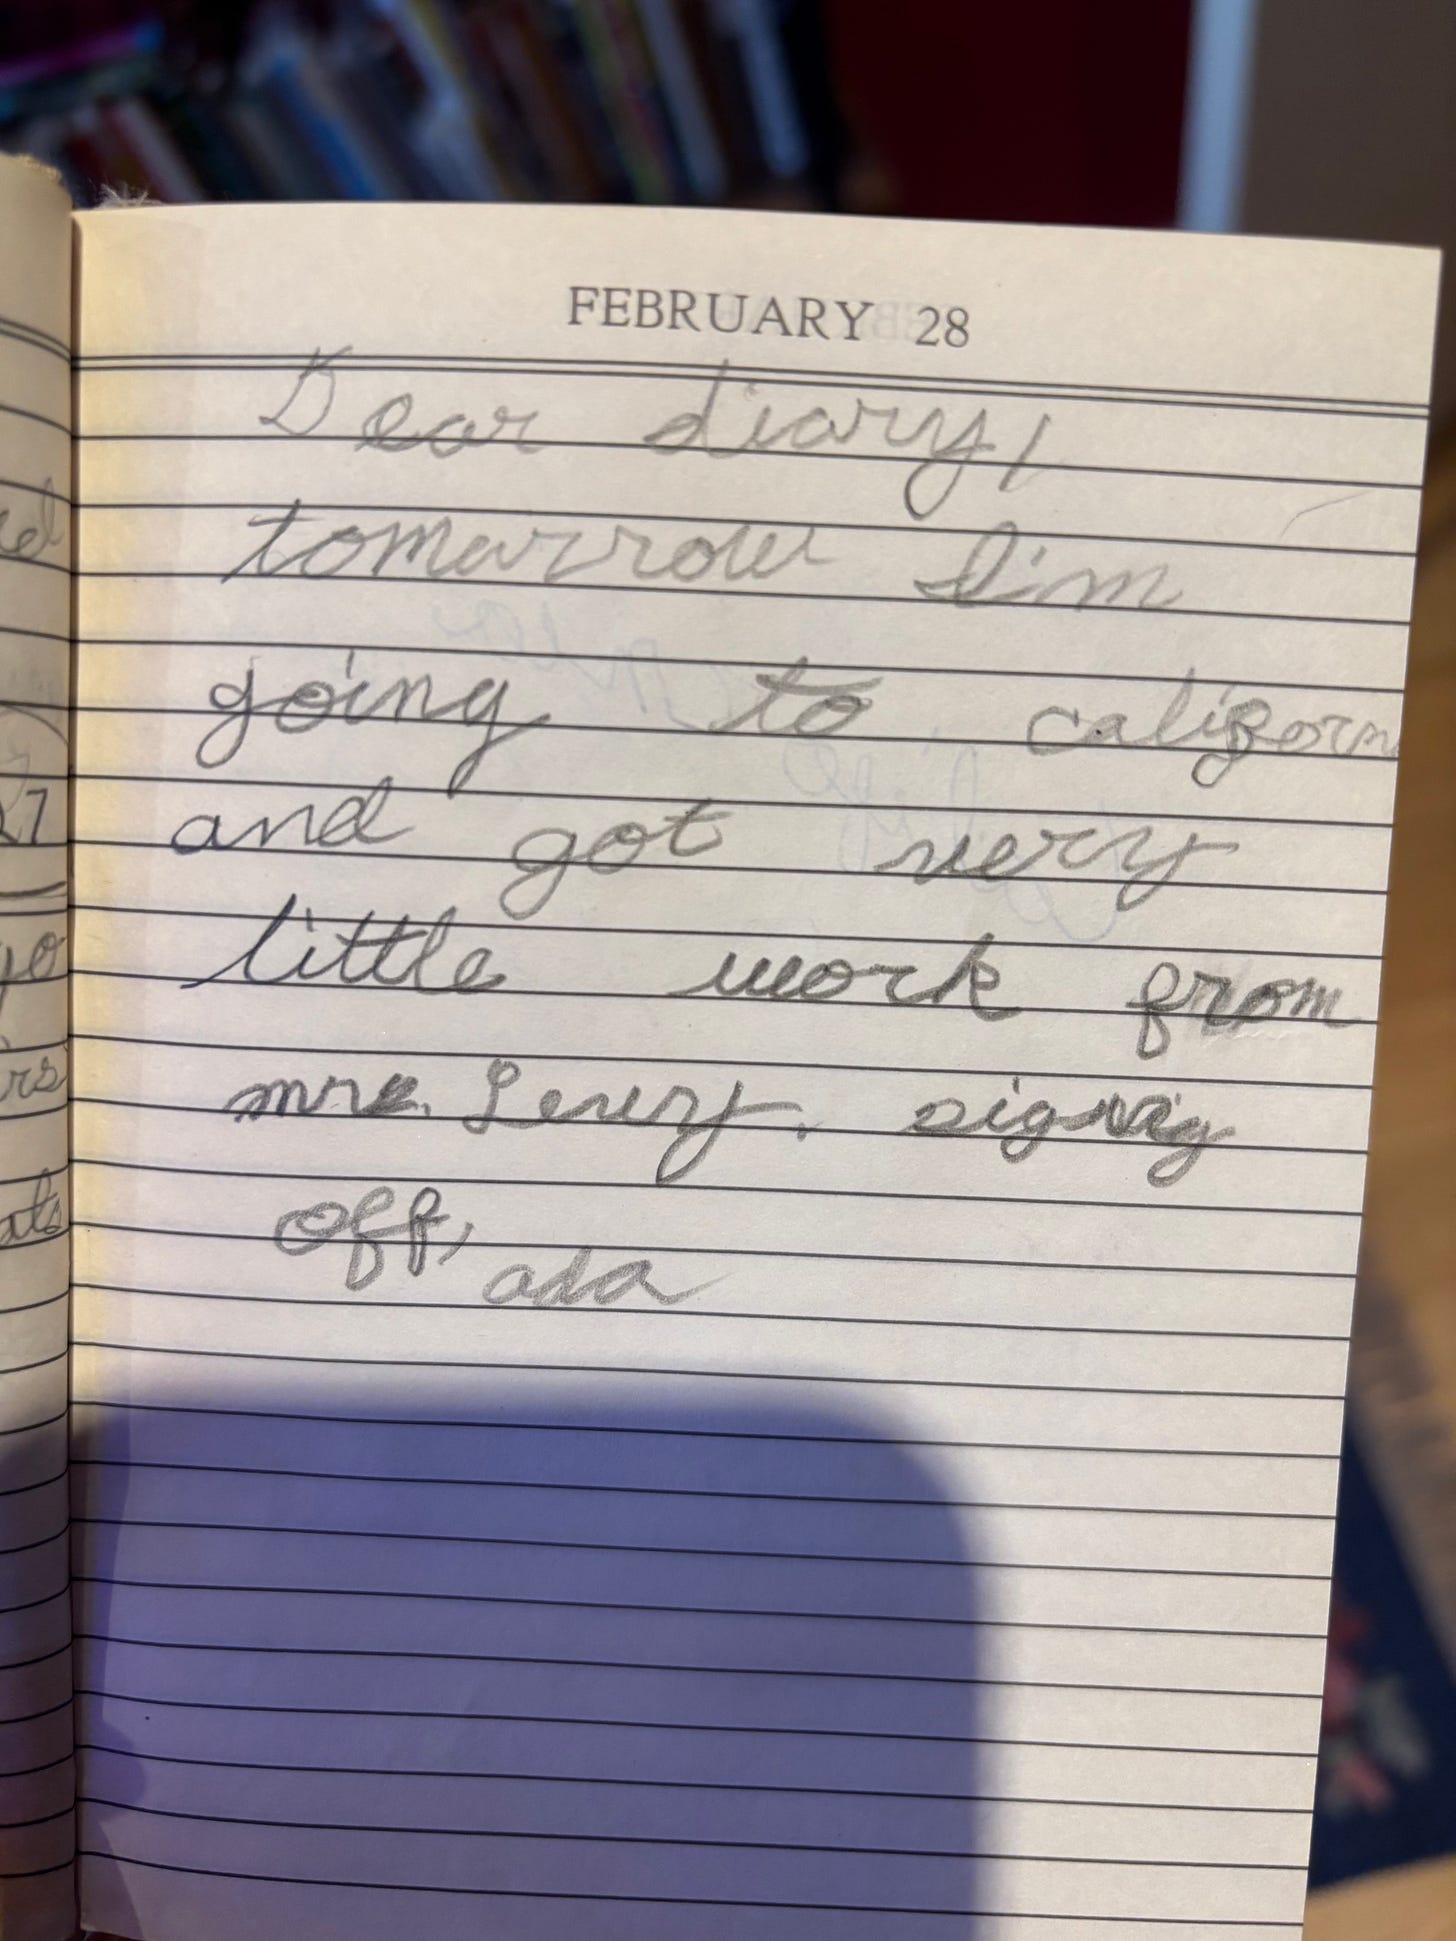 FEBRUARY 28
Dear diary,
tomarrow I'm
going to californ
and got very
little work from
mrs. Levry. signig
off, ada
27